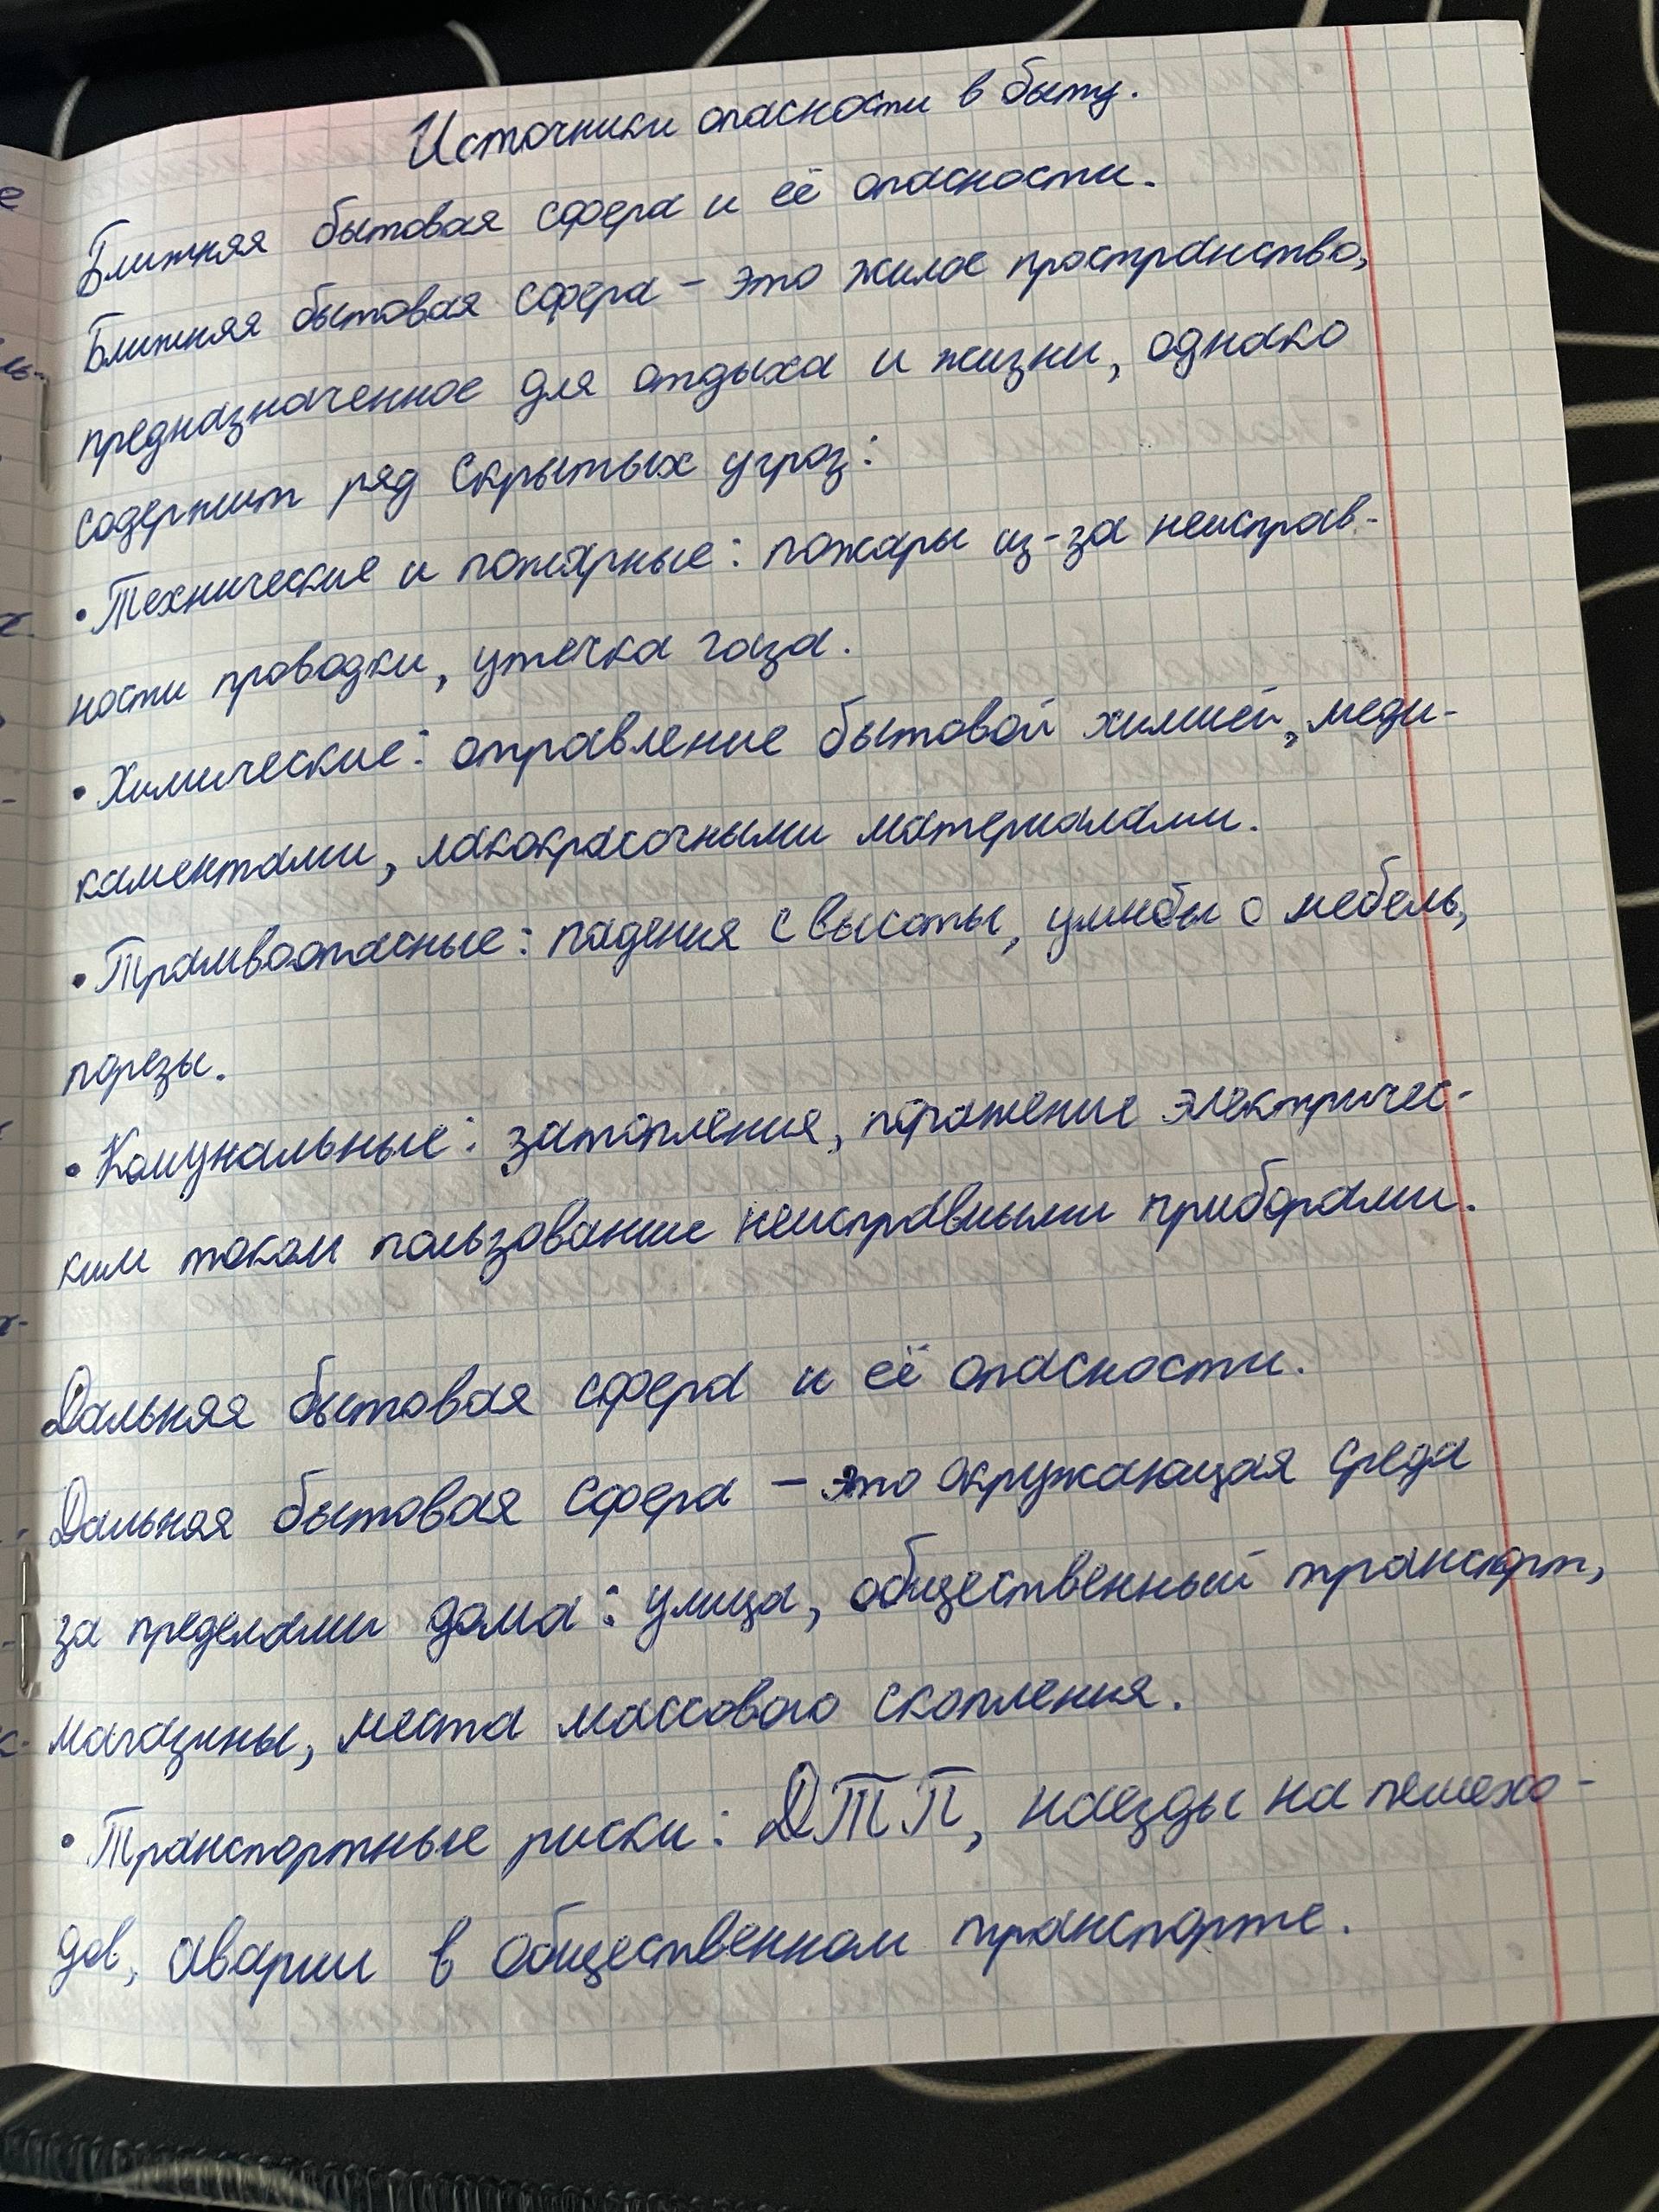 Источники опасности в быту.
Ближняя бытовая сфера и её опасности.
Ближняя бытовая сфера – это жилое пространство,
предназначенное для отдыха и жизни, однако
содержит ряд скрытых угроз:
• Технические и пожарные: пожары из-за неисправ-
ности проводки, утечка газа.
• Химические: отравление бытовой химией, меди-
каментами, лакокрасочными материалами.
• Трамвоопасные: падения с высоты, ушибы о мебель,
порезы.
• Комунальные: затопления, поражение электричес-
ким током пользование неисправными приборами.
Дальняя бытовая сфера и её опасности.
Дальняя бытовая сфера – это окружающая среда
за пределами дома: улица, общественный транспорт,
магазины, места массового скопления.
• Транспортные риски: ДТП, наезды на пешехо-
дов, аварии в общественном транспорте.